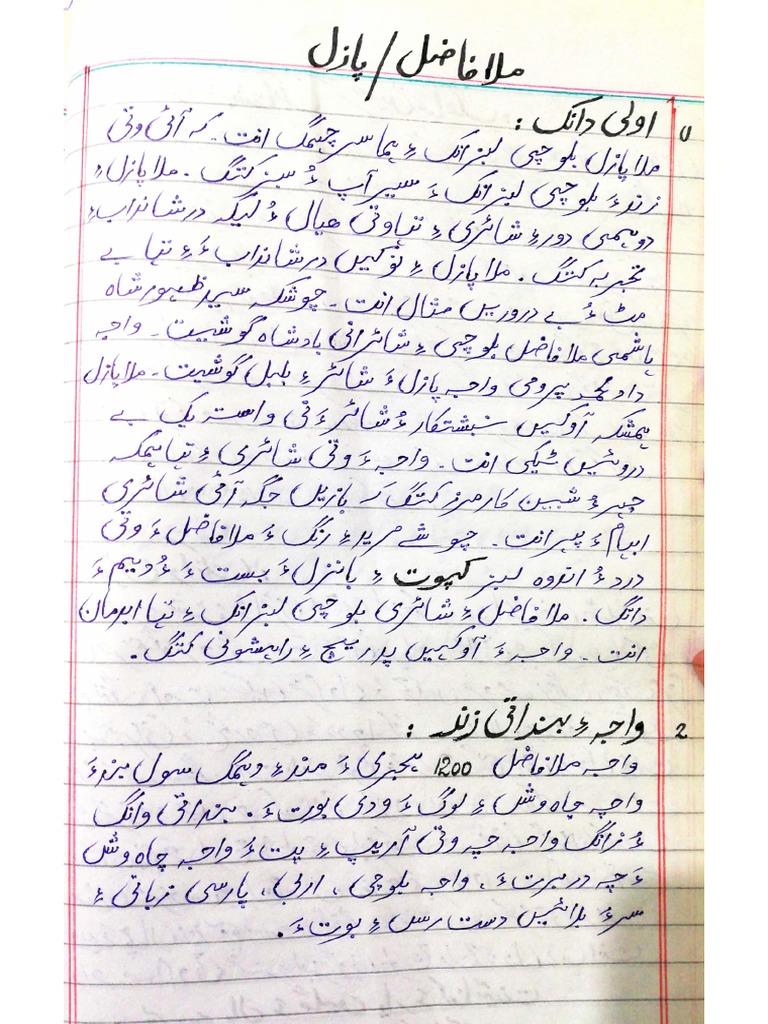 ملا فاضل / پازل
1) اولی دانک :
ملا پازل بلوچی لبزانک ءِ ہما سرچمگ انت۔ کہ آئی وتی
زند ءَ بلوچی لبزانک ءَ سیرآپ ءُ سبز کتگ۔ ملا پازل ءِ
دوہمی دور ءِ شائری ءِ تہا وتی ھیال ءُ لیکہ درشانداب ءِ
تجربہ کتگ۔ ملا پازل ءِ نوکیں درشانداب ءَ ءِ تہا بے
مٹ ءُ بے دروریں مثال انت۔ چوشکہ سید ظہور شاہ
ہاشمی ملا فاضل بلوچی ءِ شائرانی بادشاہ گوشیت۔ واجہ
داد محمد پیرومی واجہ پازل ءَ شائر ءِ بلبل گوشیت۔ ملا پازل
ہمشکہ آوکیں نبشتکار ءُ شائر ءَ نی واستہ یک بے
دروئیں ٹیکی انت۔ واجہ ءَ وتی شائری ءِ تہا ہمکہ
چیر ءُ شبین کارمرز کتگ کہ بازیں جگہ آئی شائری
ابہام ءَ پیرانت۔ چو شے مرید ءِ رنگ ءَ ملا فاضل ءَ وتی
درد ءُ اندوہ لبز کپوت ءِ بانزل ءَ بست ءَ ءُ دیم ءَ
داتگ۔ ملا فاضل ءِ شائری بلوچی لبزانک ءِ تہا ابرمان
انت۔ واجہ ءَ آوکیں پدریچ ءِ راہشونی کتگ۔
2 واجہ ءِ بنداتی زند :
واجہ ملا فاضل 1200 ہجری ءَ مند ءِ دہمگ سول بند ءَ
واجہ چاہ وش ءِ لوگ ءَ ودی بوت ءَ۔ بنداتی وانگ
ءُ زانگ واجہ چہ وتی آریپ ءِ پت ءَ واجہ چاہ وش
ءَ چہ در برت ءَ، واجہ بلوچی، اربی، پارسی زبانی ءِ
سر ءَ بلائیں دست رس ءِ بوت ءَ۔